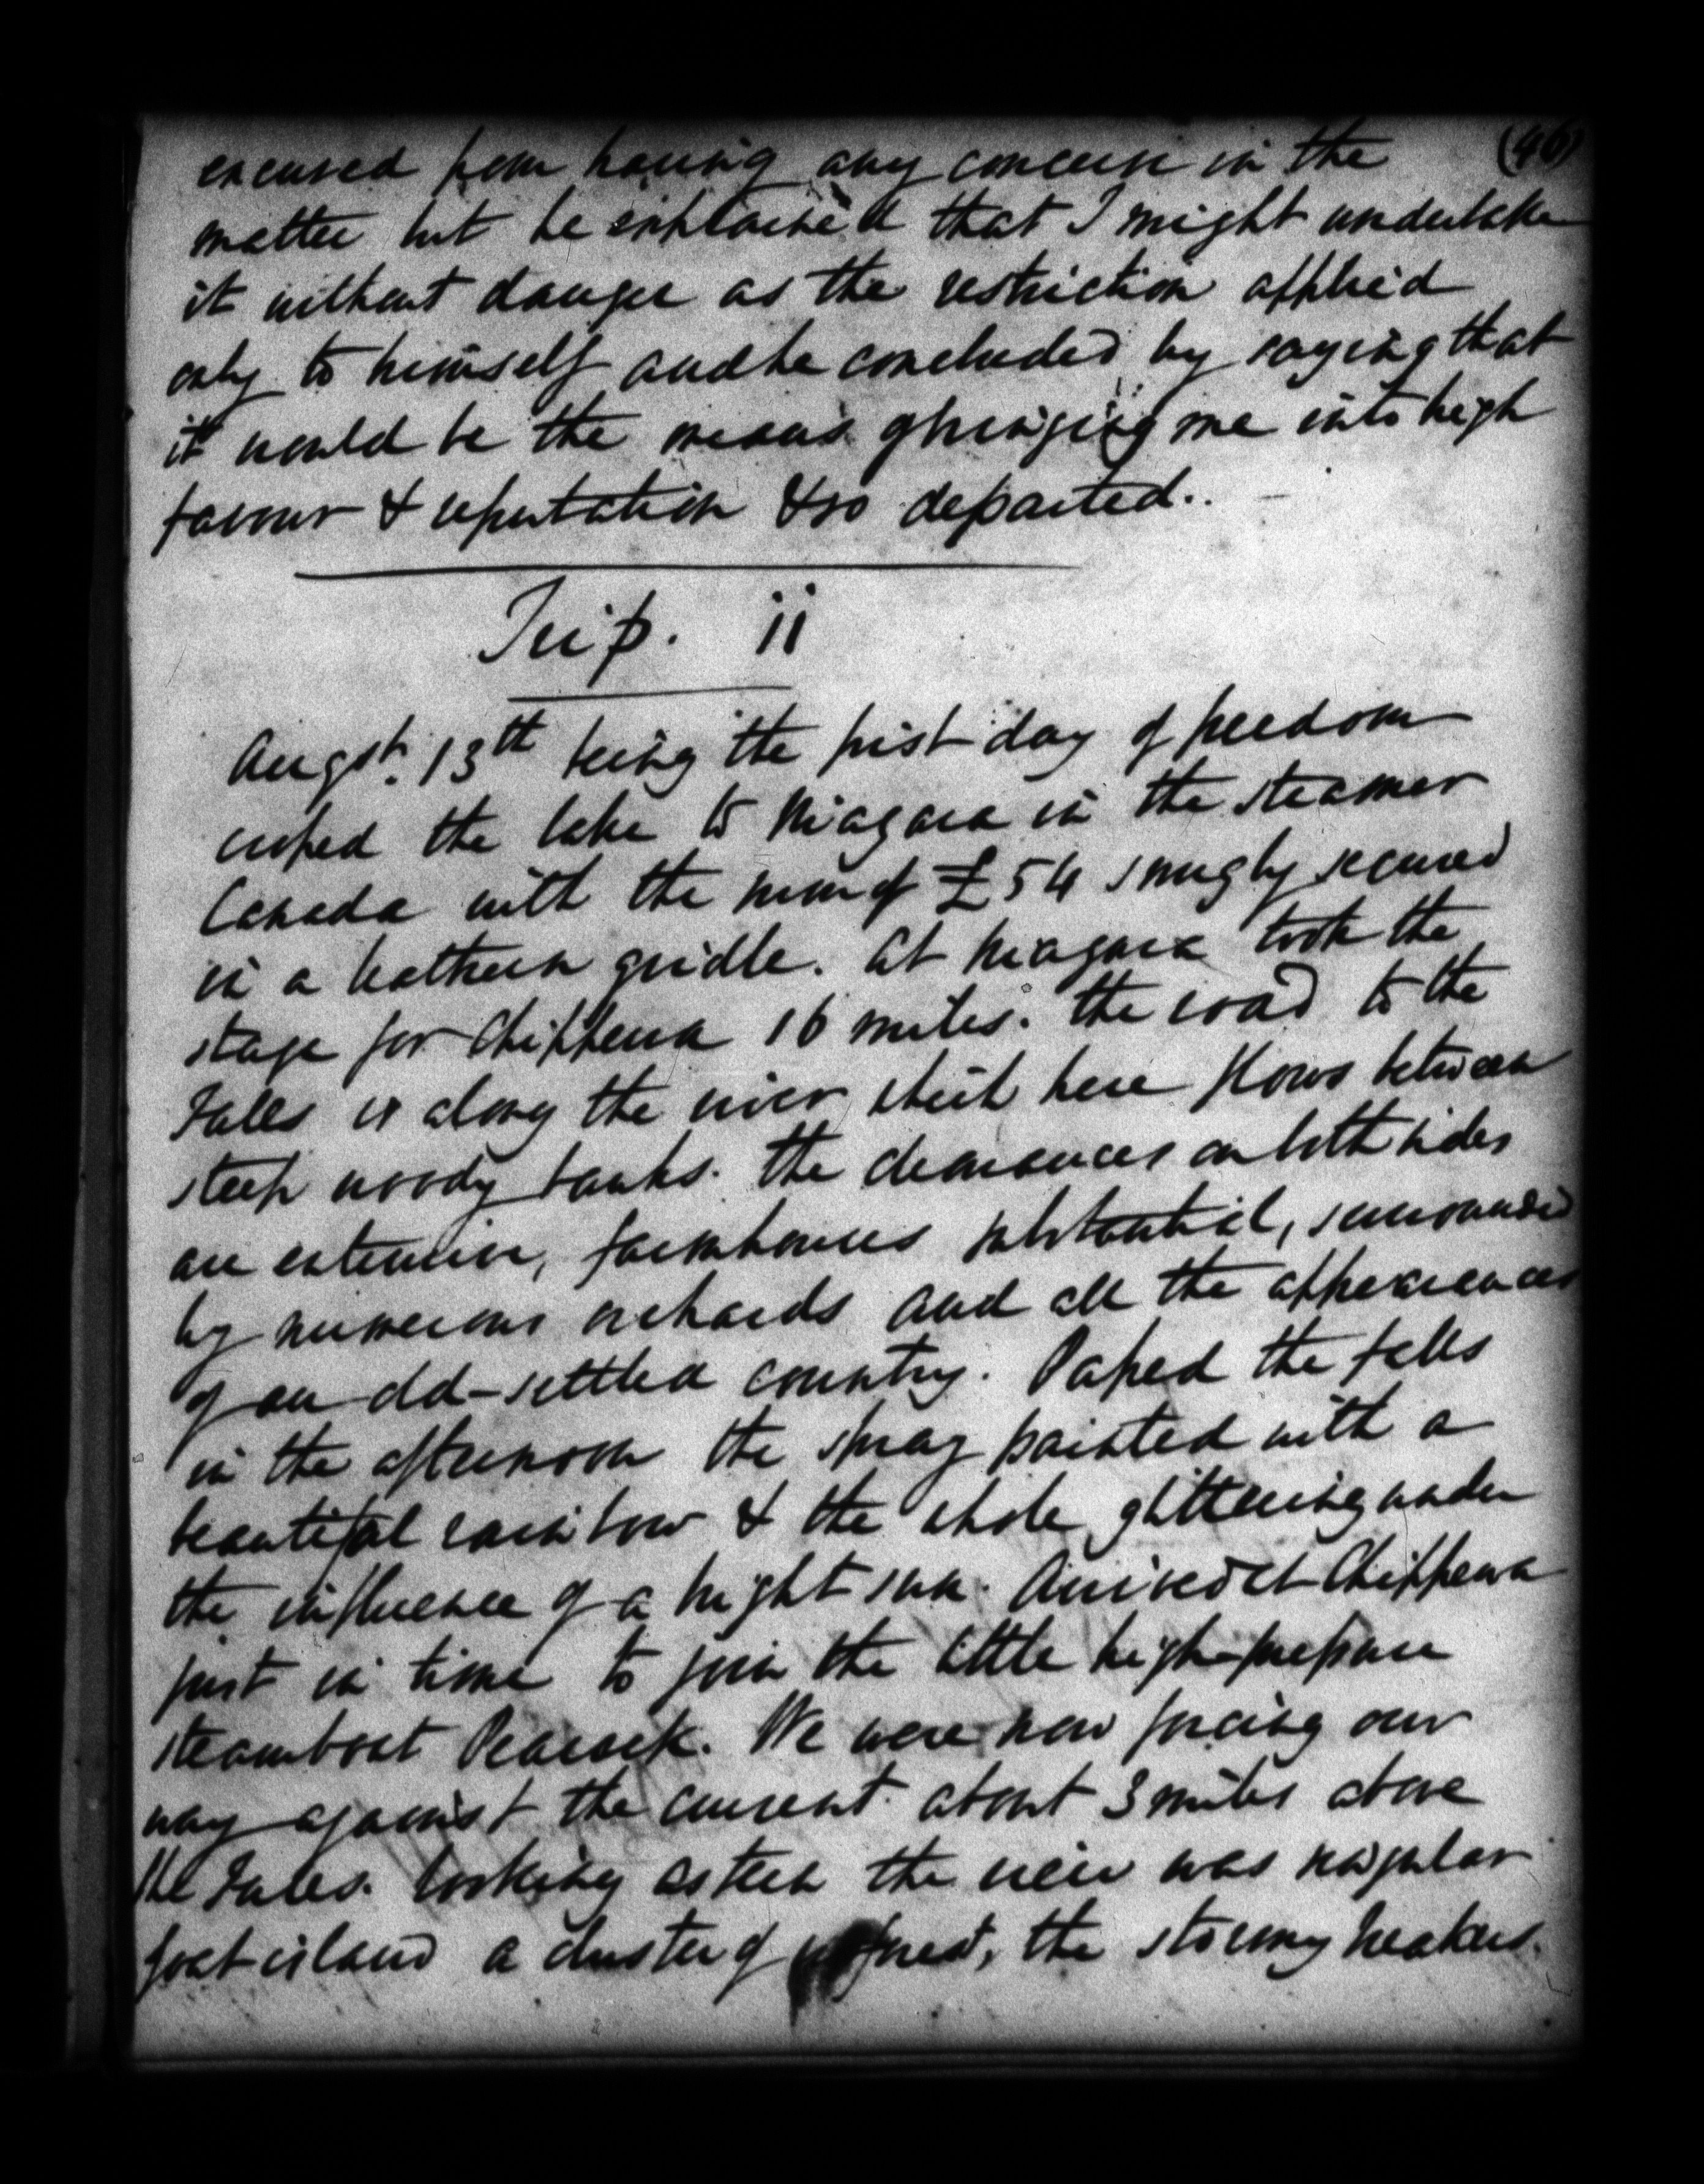 (46)
excused from having any concern in the
matter but he explained that I might undertake
it without danger as the restriction applied
only to himself and he concluded by saying that
it would be the means of bringing me into high
favour & reputation & so departed. . —
Trip. ii
Augst. 13th being the first day of freedom
crossed the lake to Niagara in the steamer
Canada with the sum of £54 snugly secured
in a leathern girdle. At Niagara took the
stage for Chippewa 16 miles. The road to the
Falls is along the river which here flows between
steep woody banks. The clearances on both sides
are extensive, farmhouses substantial, surrounded
by numerous orchards and all the appearances
of an old-settled country. Passed the falls
in the afternoon the spray painted with a
beautiful rainbow & the whole glittering under
the influence of a bright sun. Arrived at Chippewa
just in time to join the little high-pressure
steamboat Peacock. We were now forcing our
way against the current about 3 miles above
the Falls. Looking astern the view was singular
Goat island a cluster of forest, the stormy breakers.